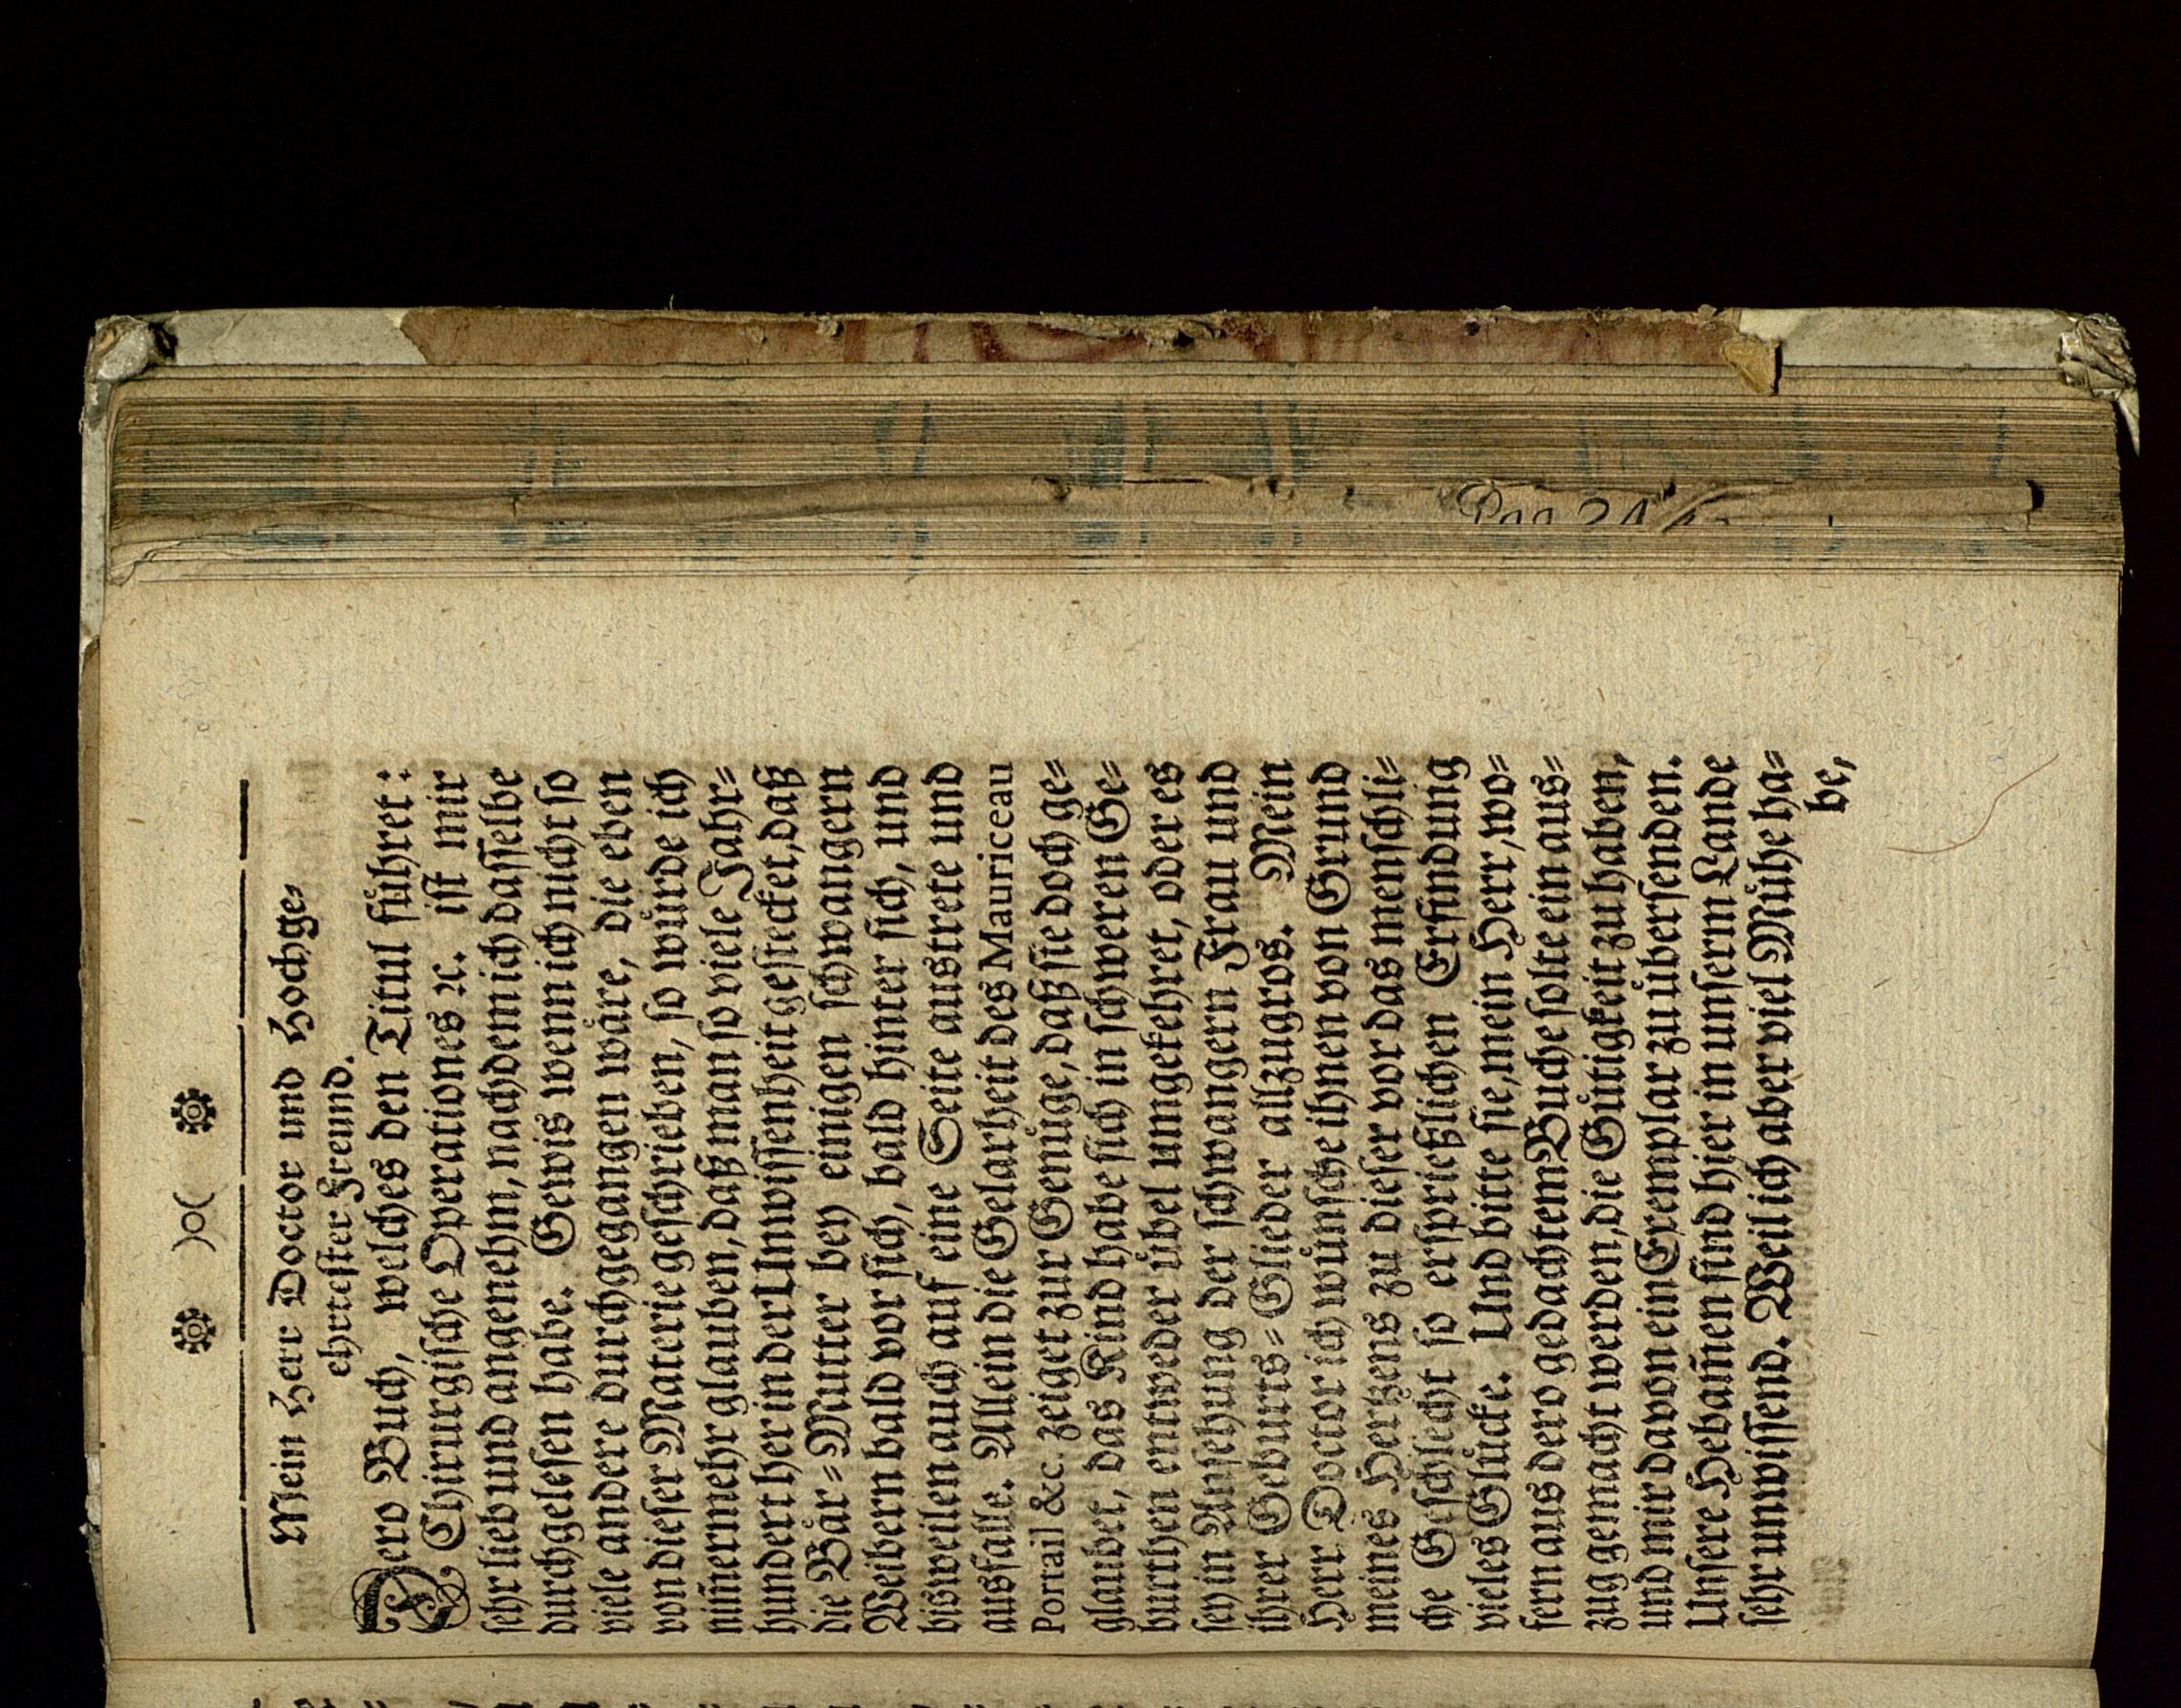 )o(
Mein Herr Doctor und Hochge-
ehrtester Freund.
Dero Buch, welches den Titul führet:
Chirurgische Operationes ꝛc. ist mir
sehr lieb und angenehm, nachdem ich dasselbe
durchgelesen habe. Gewis wenn ich nicht so
viele andere durchgegangen wäre, die eben
von dieser Materie geschrieben, so würde ich
nim̃ermehr glauben, daß man so viele Jahr-
hundert her in der Unwissenheit gestecket, daß
die Bär-Mutter bey einigen schwangern
Weibern bald vor sich, bald hinter sich, und
bisweilen auch auf eine Seite austrete und
ausfalle. Allein die Gelarheit des Mauriceau
Portail &c. zeiget zur Genüge, daß sie doch ge-
glaubet, das Kind habe sich in schweren Ge-
burthen entweder übel umgekehret, oder es
sey in Ansehung der schwangern Frau und
ihrer Geburts-Glieder allzugros. Mein
Herr Doctor ich wünsche ihnen von Grund
meines Hertzens zu dieser vor das menschli-
che Geschlecht so ersprießlichen Erfindung
vieles Glücke. Und bitte sie, mein Herr, wo-
fern aus dero gedachtem Buche solte ein aus-
zug gemacht werden, die Gütigkeit zu haben,
und mir davon ein Exemplar zu übersenden.
Unsere Hebam̃en sind hier in unserm Lande
sehr unwissend. Weil ich aber viel Mühe ha-
be,